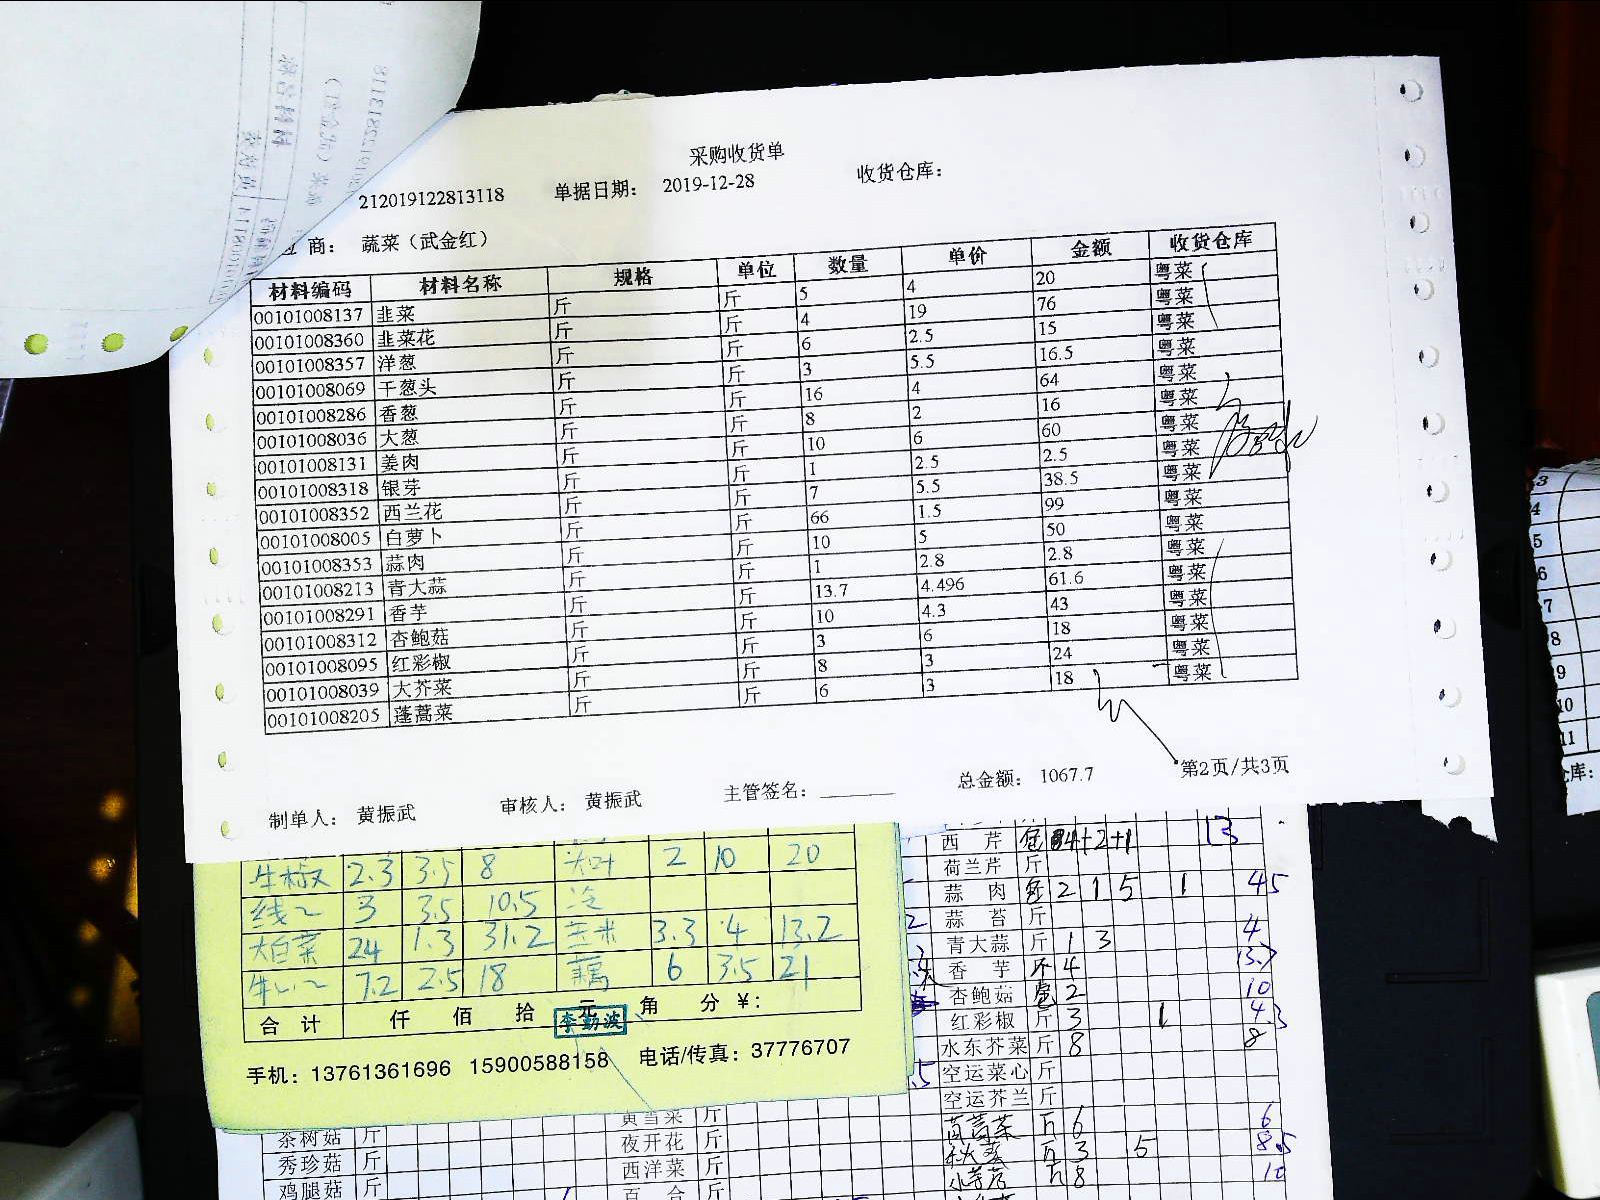 采购收货单
212019122813118 单据日期： 2019-12-28 收货仓库：
商： 蔬菜（武金红）
材料编码 材料名称 规格 单位 数量 单价 金额 收货仓库
00101008137 韭菜 斤 斤 5 4 20 粤菜
00101008360 韭菜花 斤 斤 4 19 76 粤菜
00101008357 洋葱 斤 斤 6 2.5 15 粤菜
00101008069 干葱头 斤 斤 3 5.5 16.5 粤菜
00101008286 香葱 斤 斤 16 4 64 粤菜
00101008036 大葱 斤 斤 8 2 16 粤菜
00101008131 姜肉 斤 斤 10 6 60 粤菜
00101008318 银芽 斤 斤 1 2.5 2.5 粤菜
00101008352 西兰花 斤 斤 7 5.5 38.5 粤菜
00101008005 白萝卜 斤 斤 66 1.5 99 粤菜
00101008353 蒜肉 斤 斤 10 5 50 粤菜
00101008213 青大蒜 斤 斤 1 2.8 2.8 粤菜
00101008291 香芋 斤 斤 13.7 4.496 61.6 粤菜
00101008312 杏鲍菇 斤 斤 10 4.3 43 粤菜
00101008095 红彩椒 斤 斤 3 6 18 粤菜
00101008039 大芥菜 斤 斤 8 3 24 粤菜
00101008205 蓬蒿菜 斤 斤 6 3 18 粤菜
总金额： 1067.7 第2页/共3页
制单人： 黄振武 审核人： 黄振武 主管签名：
牛椒 2.3 3.5 8 尖叶 2 10 20
线～ 3 3.5 10.5
大白菜 24 1.3 31.2 玉米 3.3 4 13.2
7.2 2.5 18 藕 6 3.5 21
合 计 仟 佰 拾 元 角 分 ¥:
李勤波
手机：13761361696 15900588158 电话/传真：37776707
西 芹 4+2+1 13
荷兰芹 斤
蒜 肉 2 1 5 1 45
蒜 苔 斤
青大蒜 斤 1 3 4
香 芋 4 13.7
杏鲍菇 2 10
红彩椒 斤 3 1 4.3
水东芥菜 斤 8 8
空运菜心 斤
空运芥兰 斤
茼蒿菜 斤 6 6
秋葵 斤 3 5 8.5
斤 8 10
茶树菇 斤
秀珍菇 斤
鸡腿菇 斤
斤
夜开花 斤
西洋菜 斤
百 合 斤